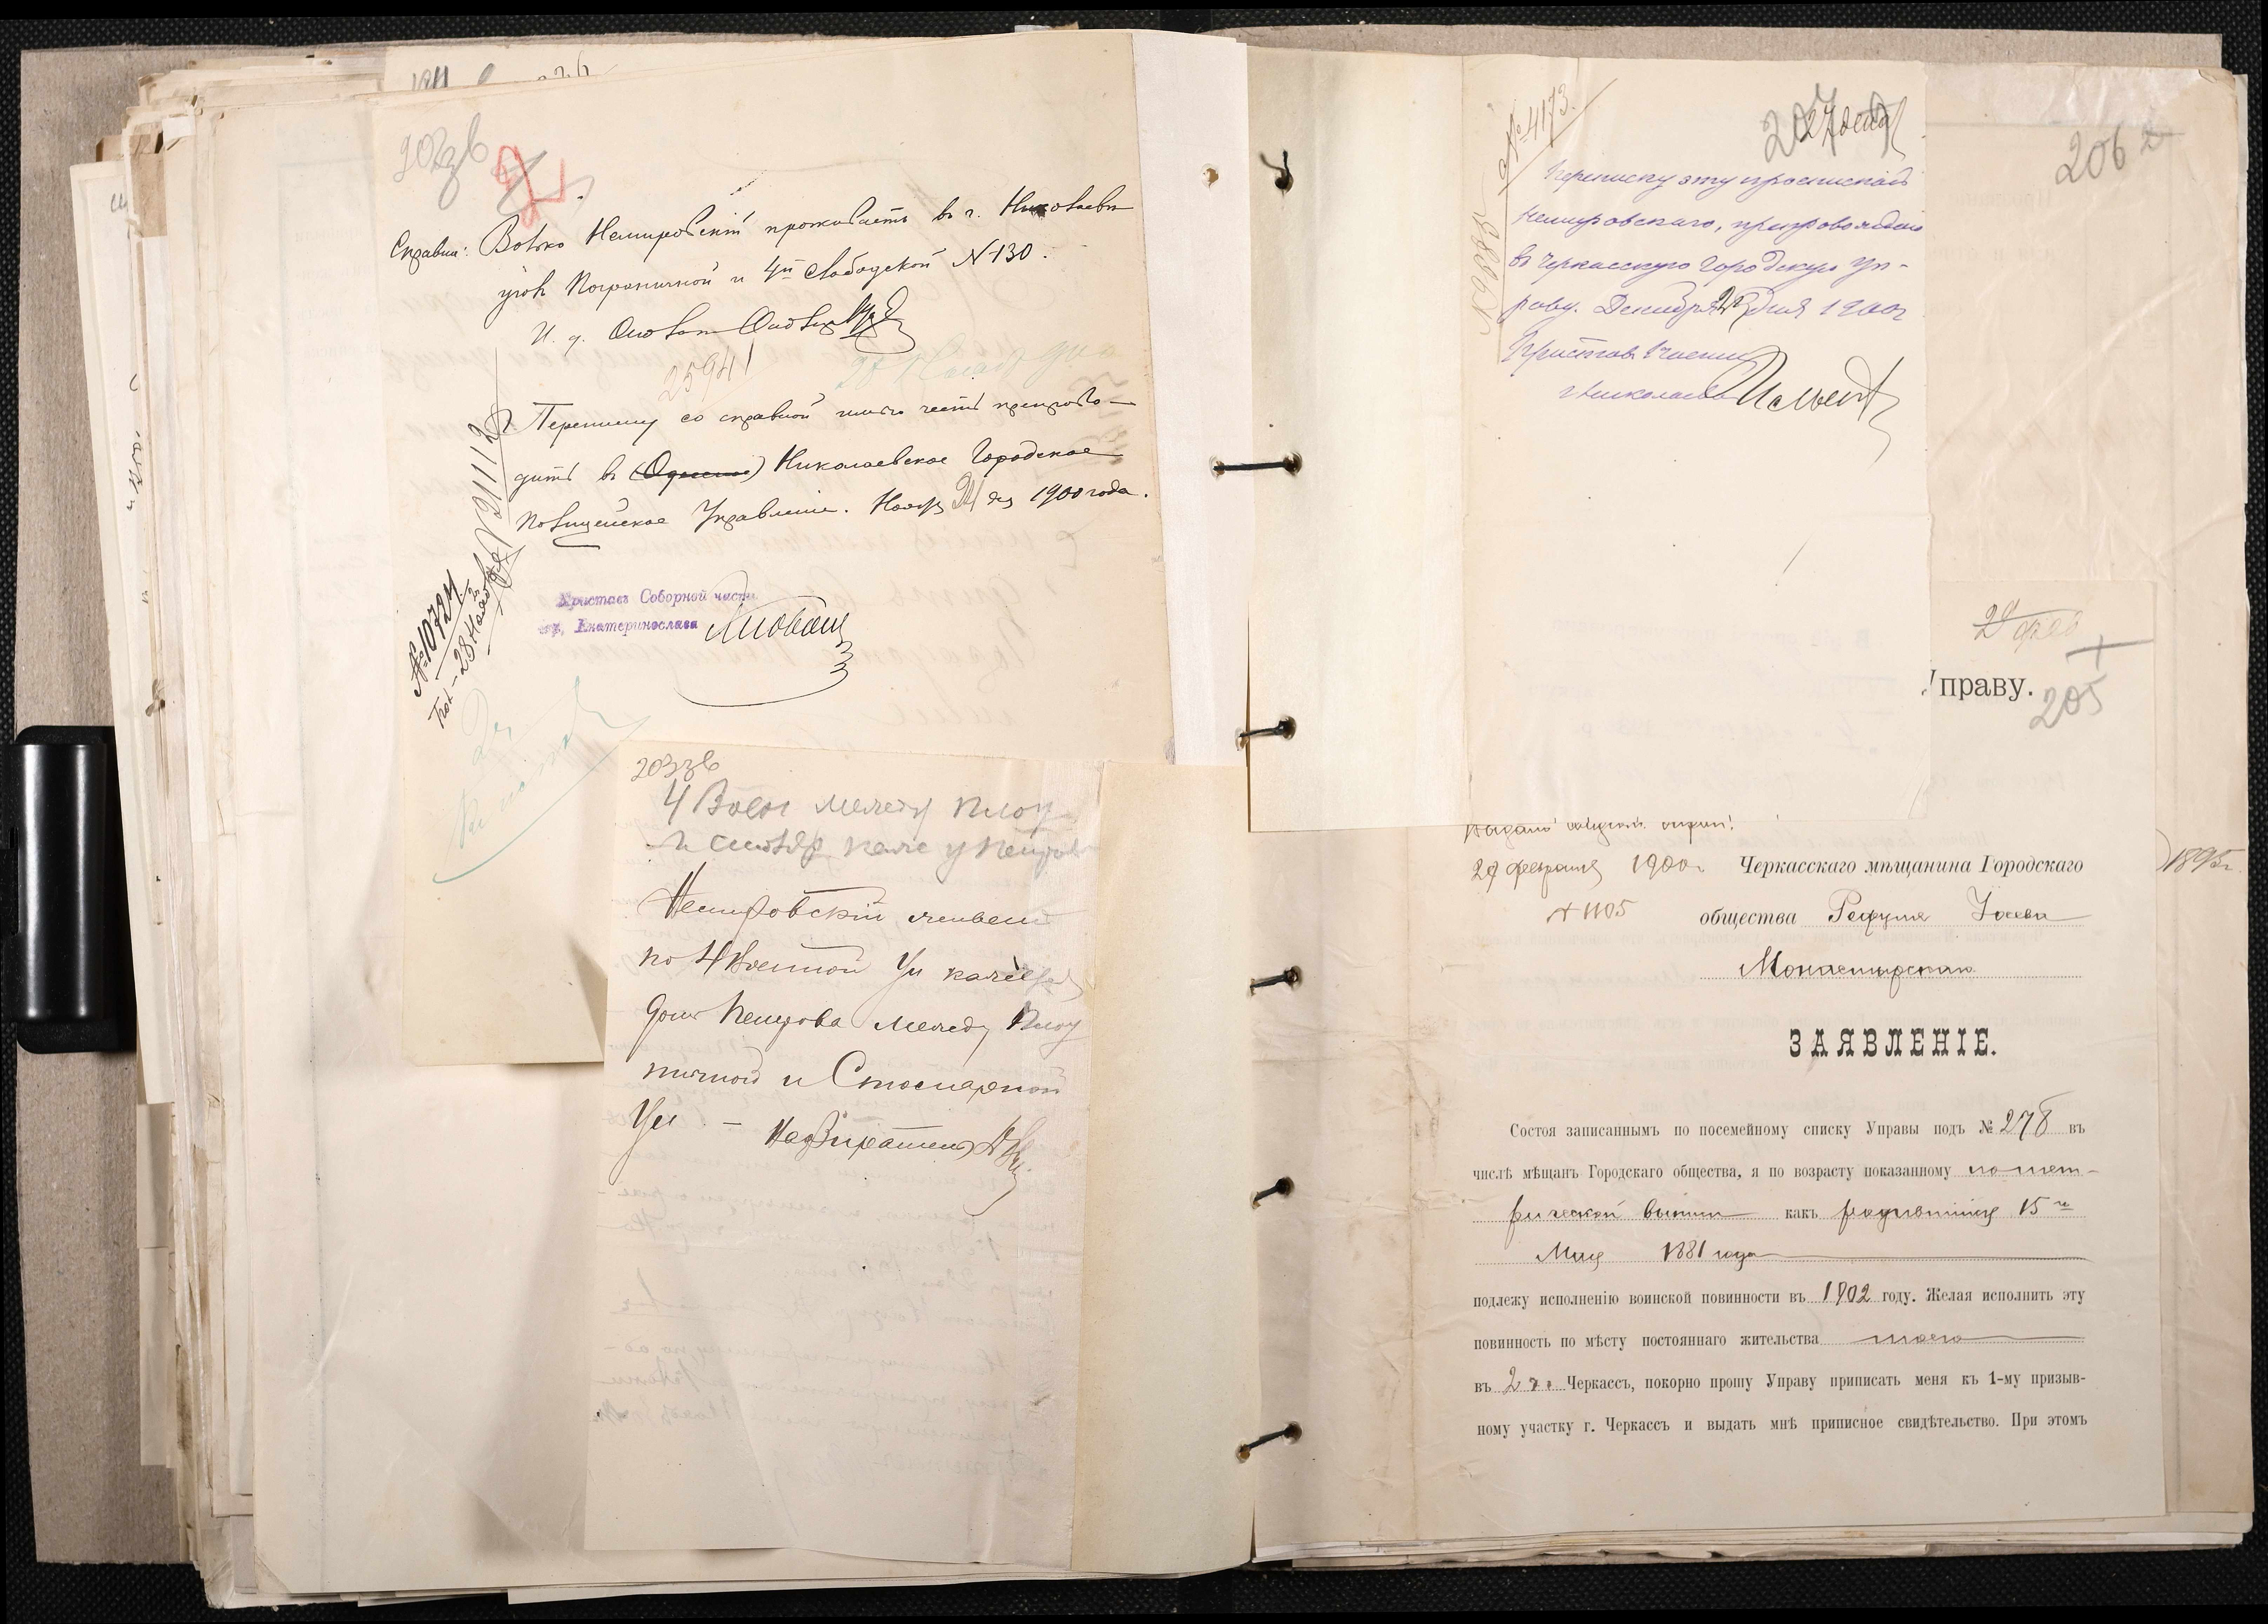 203 зв
Справка: Волько Немировскій проживаетъ въ г. Николаевѣ
уголъ Пограничной и 4й Слободской N 130.
И. д.
25941
Переписку со справкой имѣю честь препрово-
дить въ (Одесское) Николаевское Городское
Полицейское Управленіе. Ноября 24 дня 1900 года.
N 21112
№ 10724
Пол - 28 Ноября
Приставъ Соборной части
гор. Екатеринослава
203 зв
4 Воен между Плот
и Столяр. коло у Кенцов
Немировскій живетъ
по 4 Военной Ул
домъ Кенцова между Плот
ничной и Столярной
Ул. — Надзиратель
№ 4173.
27 дека
207
Переписку эту съ роспиской
Немировскаго, препровождаю
въ Черкасскую Городскую Уп-
раву. Декабря дня 1900 г.
Приставъ части
г. Николаева
206
28 фев
Управу.
205
1895 г.
28 Февраля 1900 г. Черкасскаго мѣщанина Городскаго
N 1105 общества Рефуля Іосева
Монастырскаго
ЗАЯВЛЕНІЕ.
Состоя записаннымъ по посемейному списку Управы подъ № 278 въ
числѣ мѣщанъ Городскаго общества, я по возрасту показанному по мет-
рической выписи какъ родившійся 15го
Мая 1881 года
подлежу исполненію воинской повинности въ 1902 году. Желая исполнить эту
повинность по мѣсту постояннаго жительства моего
въ г. Черкассъ, покорно прошу Управу приписать меня къ 1-му призыв-
ному участку г. Черкассъ и выдать мнѣ приписное свидѣтельство. При этомъ